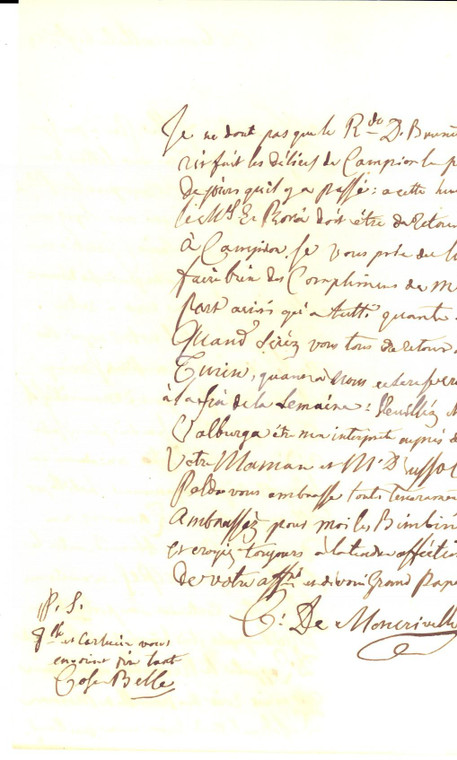 Je ne dout pas que le R.do D. Brun
fait les délices de Campion le p
de jours qu'il y a passé : a cette heu
le M. E. Rorà doit être de retour
à Campion, Je vous prie de l
faire bien des Complimens de m
part aussi qu'a tutti quanti.
Quand serez vous tous de retour
Turin, quant à nous
à la fin de la Semaine : Veuillez
Valburga être mon interprete auprès d
Votre Maman et M.
vous embrasse touts tendremen
Ambrassez pour moi les Bimbin
et croyez toujours à la tendre affection
de votre aff.né et devoué Grand Papa
C. De Moncrivello
P. S.
et vous
tant
Cose Belle